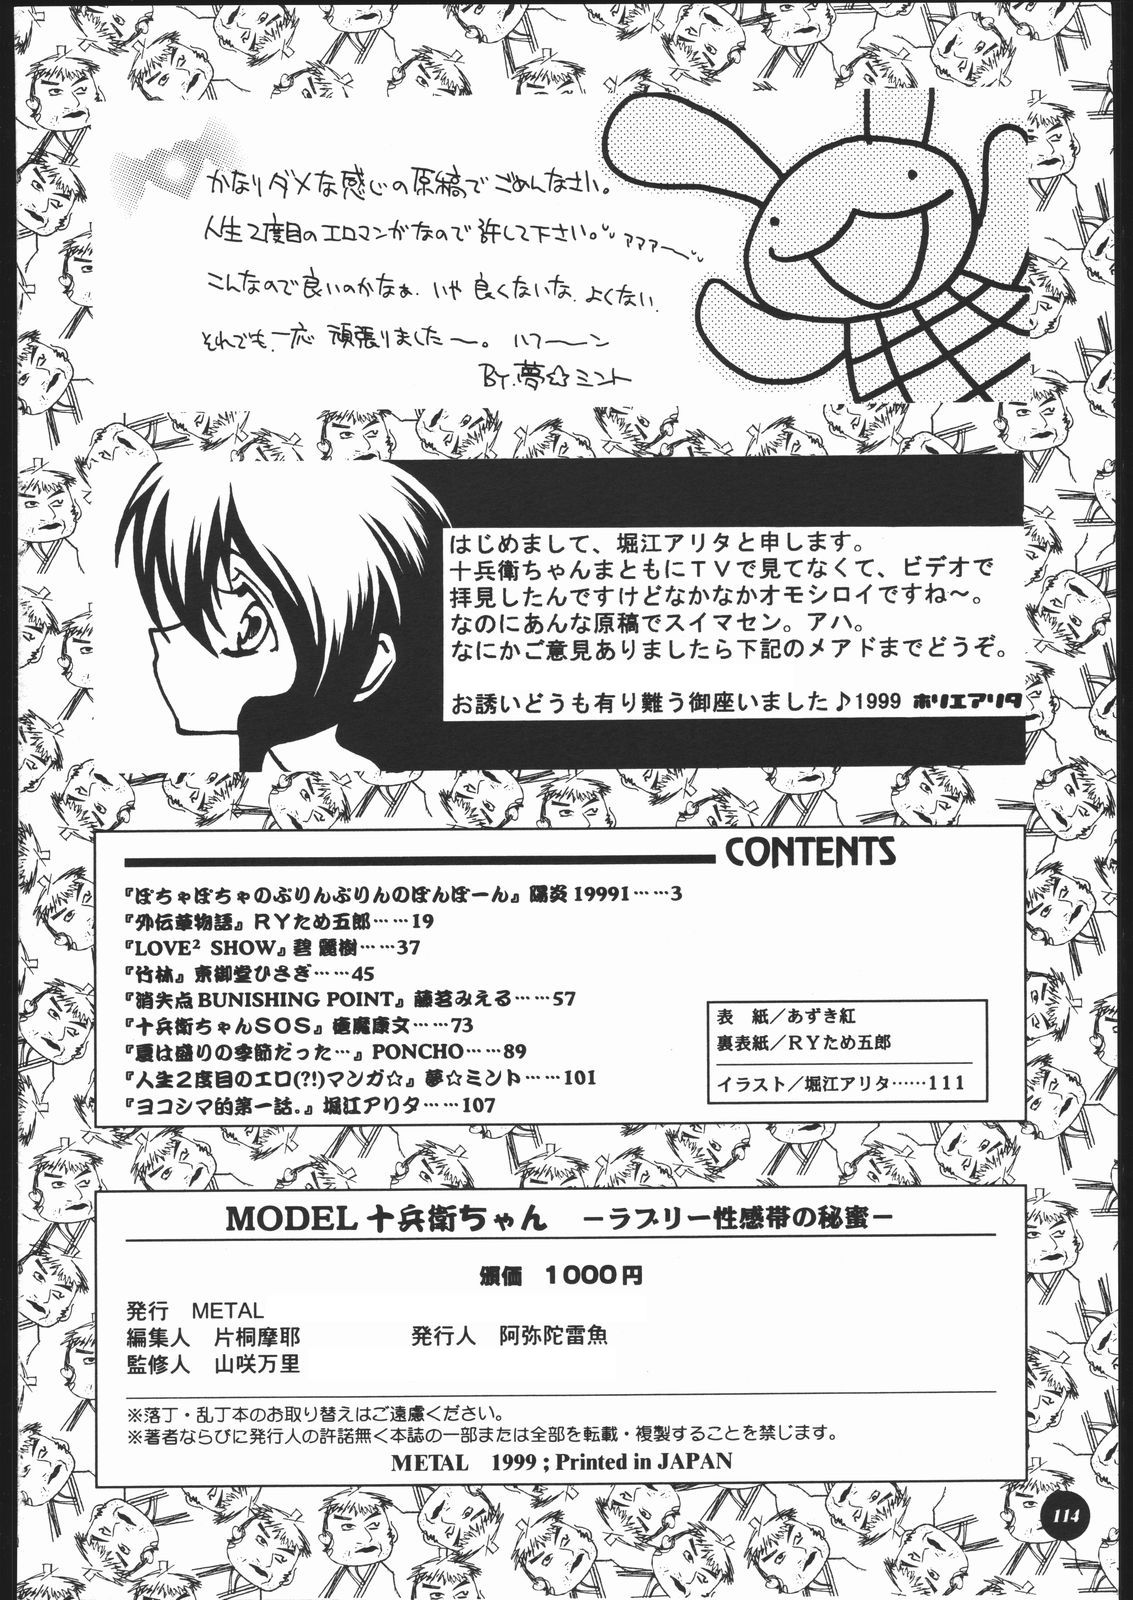 かなりダメな感じの原稿でごめんなさい。
人生2度目のエロマンガなので許して下さい。アアアー
こんなので良いのかなぁ、いや良くないな、よくない
それでも一応 頑張りました〜。ハフーン
By.夢☆ミント
はじめまして、堀江アリタと申します。
十兵衛ちゃんまともにTVで見てなくて、ビデオで
拝見したんですけどなかなかオモシロイですね〜。
なのにあんな原稿でスイマセン。アハ。
なにかご意見ありましたら下記のメアドまでどうぞ。
お誘いどうも有り難う御座いました♪1999 ホリエアリタ
CONTENTS
『ぽちゃぽちゃのぷりんぷりんのぽんぽーん』陽炎19991……3
『外伝華物語』RYため五郎……19
『LOVE² SHOW』碧 麗樹……37
『竹林』東御堂ひさぎ……45
『消失点BUNISHING POINT』藤茗みえる……57
『十兵衛ちゃんSOS』瘧魔康文……73
『夏は盛りの季節だった…』PONCHO……89
『人生2度目のエロ(?!)マンガ☆』夢☆ミント……101
『ヨコシマ的第一話。』堀江アリタ……107
表 紙/あずき紅
裏表紙/RYため五郎
イラスト/堀江アリタ……111
MODEL十兵衛ちゃん －ラブリー性感帯の秘蜜－
頒価 1000円
発行 METAL
編集人 片桐摩耶 発行人 阿弥陀雷魚
監修人 山咲万里
※落丁・乱丁本のお取り替えはご遠慮ください。
※著者ならびに発行人の許諾無く本誌の一部または全部を転載・複製することを禁じます。
METAL 1999 ; Printed in JAPAN
114